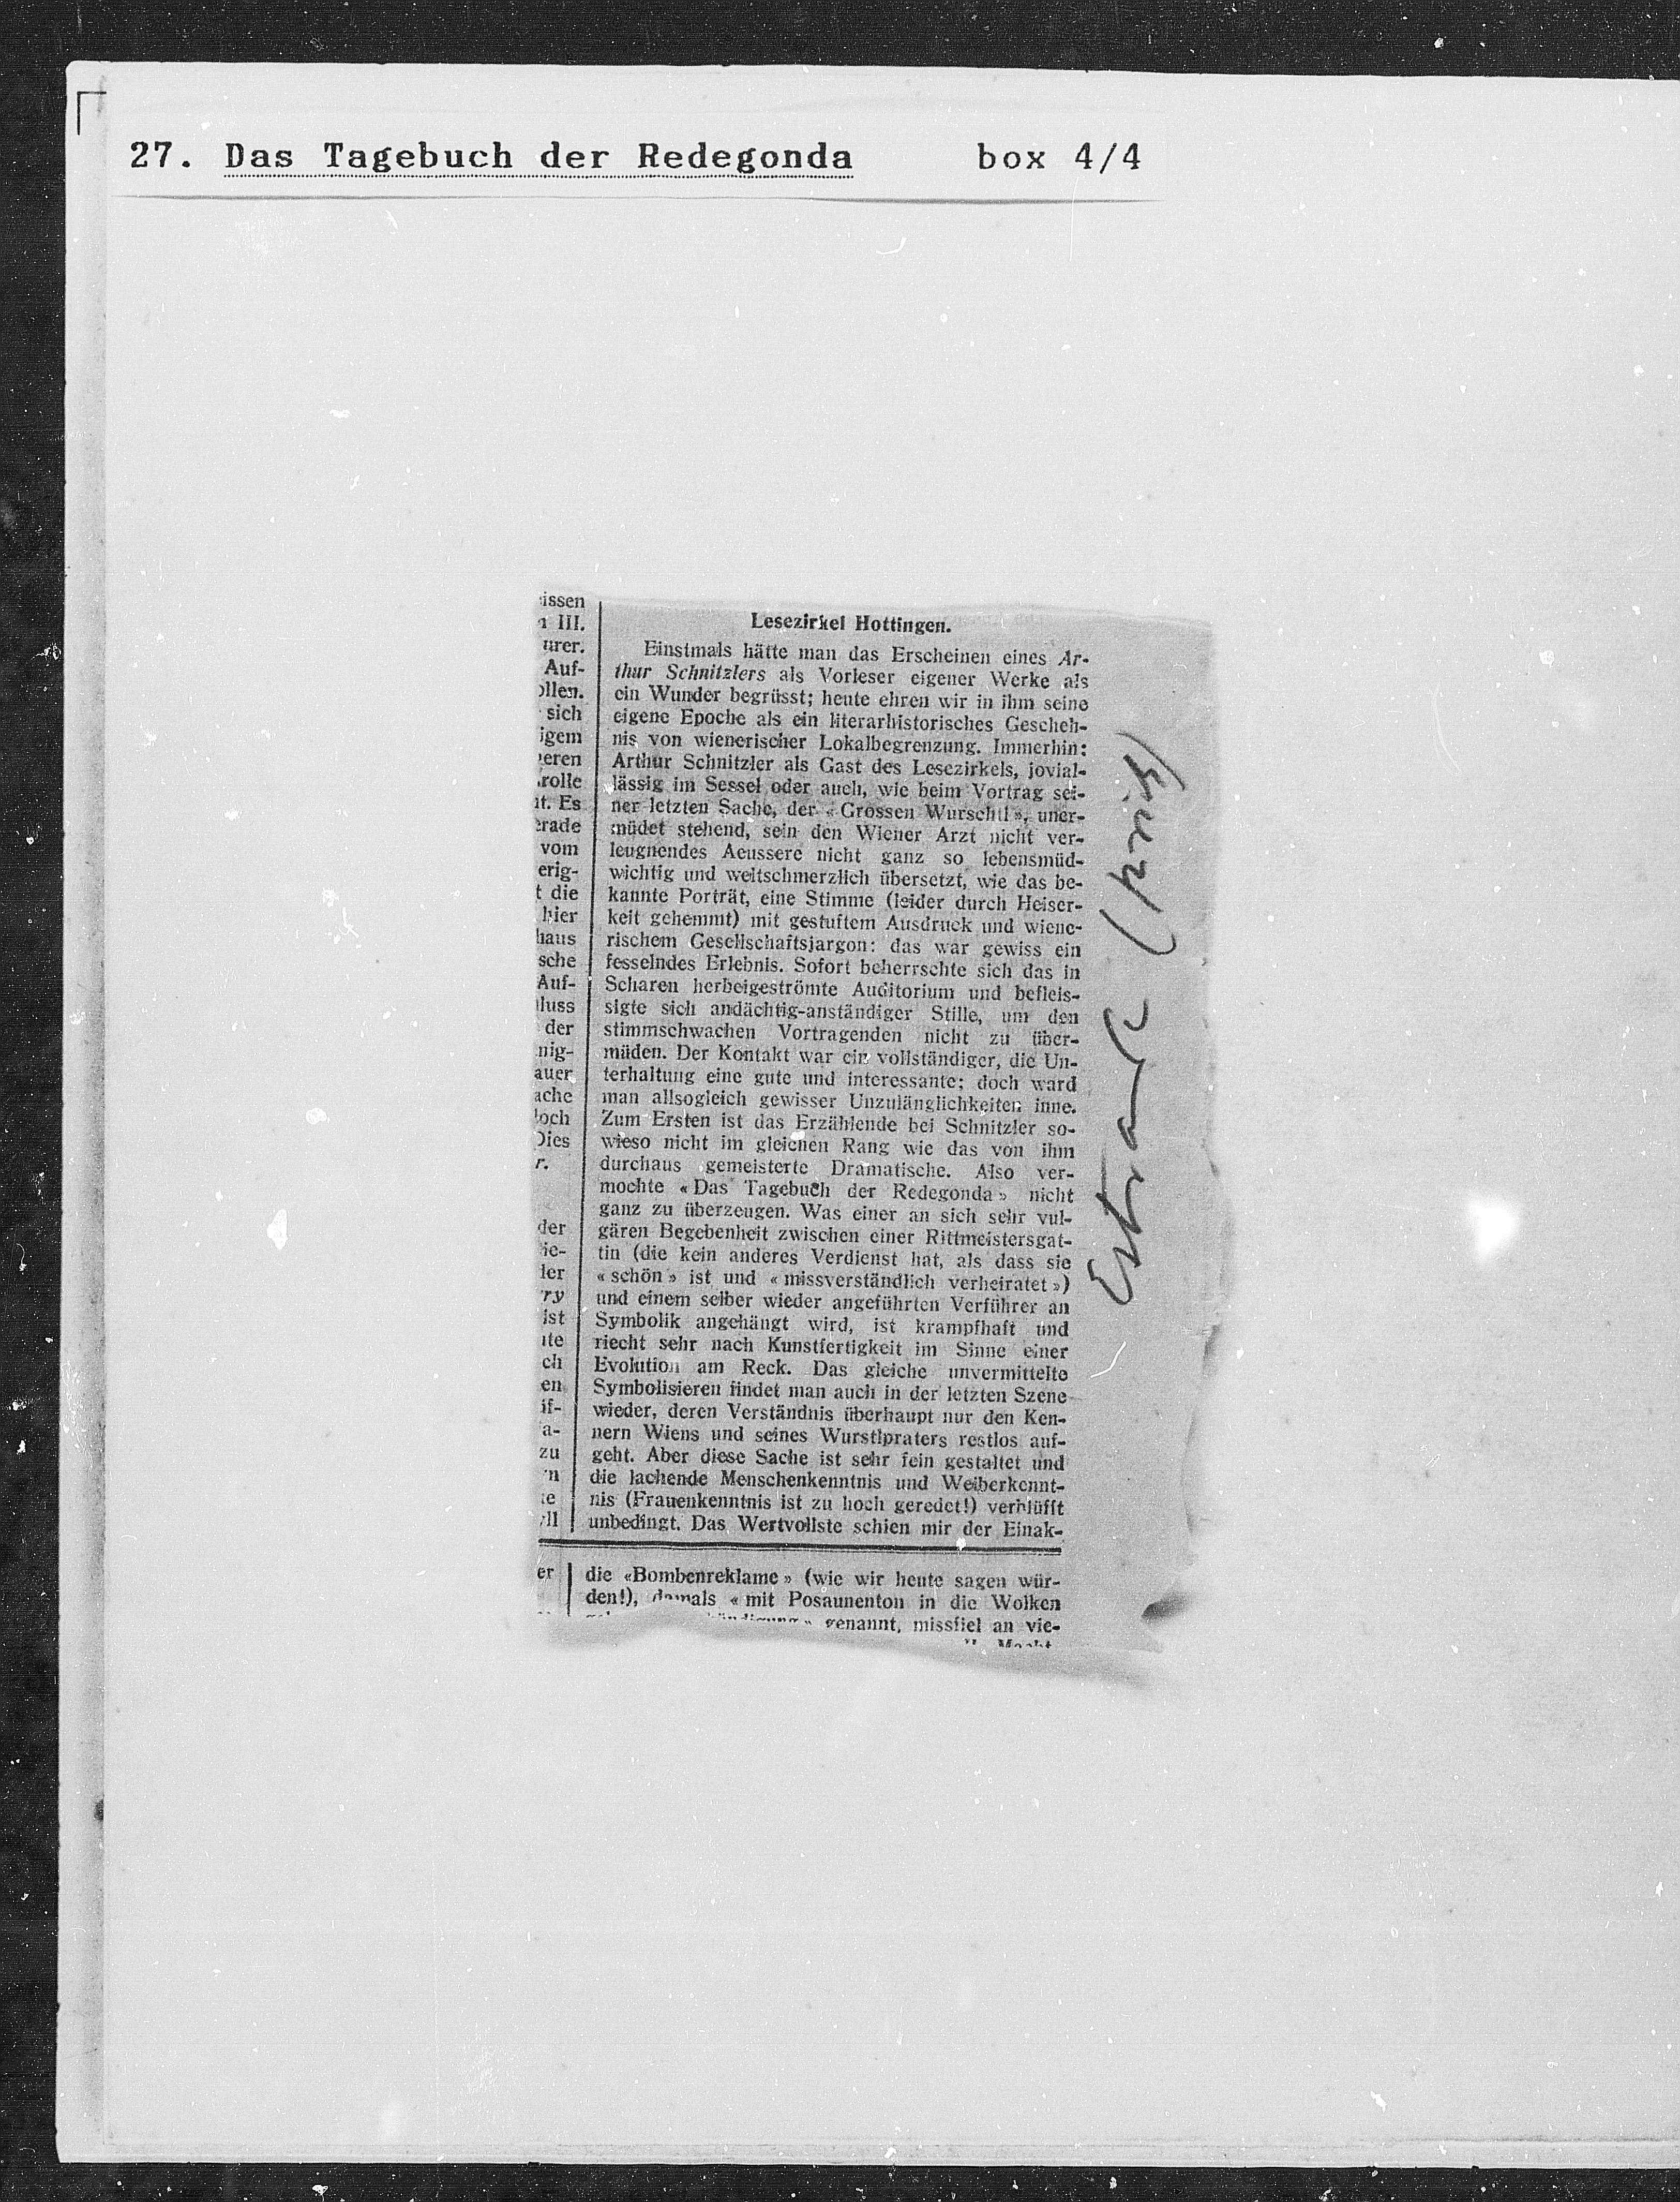 27. Das Tagebuch der Redegonda box 4/4
issen
III.
urer.
Auf-
ollen.
sich
igem
eren
rolle
it. Es
erade
vom
erig-
t die
hier
haus
sche
Auf-
luss
der
nig-
auer
ache
och
Dies
r.
der
ie-
ler
ry
ist
ite
ch
en
if-
a-
zu
n
te
ll
Lesezirkel Hottingen.
Einstmals hätte man das Erscheinen eines Ar-
thur Schnitzlers als Vorleser eigener Werke als
ein Wunder begrüsst; heute ehren wir in ihm seine
eigene Epoche als ein literarhistorisches Gescheh-
nis von wienerischer Lokalbegrenzung. Immerhin:
Arthur Schnitzler als Gast des Lesezirkels, jovial-
lässig im Sessel oder auch, wie beim Vortrag sei-
ner letzten Sache, der «Grossen Wurschtl», uner-
müdet stehend, sein den Wiener Arzt nicht ver-
leugnendes Aeussere nicht ganz so lebensmüd-
wichtig und weltschmerzlich übersetzt, wie das be-
kannte Porträt, eine Stimme (leider durch Heiser-
keit gehemmt) mit gestuftem Ausdruck und wiene-
rischem Gesellschaftsjargon: das war gewiss ein
fesselndes Erlebnis. Sofort beherrschte sich das in
Scharen herbeigeströmte Auditorium und befleis-
sigte sich andächtig-anständiger Stille, um den
stimmschwachen Vortragenden nicht zu über-
müden. Der Kontakt war ein vollständiger, die Un-
terhaltung eine gute und interessante; doch ward
man allsogleich gewisser Unzulänglichkeiten inne.
Zum Ersten ist das Erzählende bei Schnitzler so-
wieso nicht im gleichen Rang wie das von ihm
durchaus gemeisterte Dramatische. Also ver-
mochte «Das Tagebuch der Redegonda» nicht
ganz zu überzeugen. Was einer an sich sehr vul-
gären Begebenheit zwischen einer Rittmeistersgat-
tin (die kein anderes Verdienst hat, als dass sie
«schön» ist und «missverständlich verheiratet»)
und einem selber wieder angeführten Verführer an
Symbolik angehängt wird, ist krampfhaft und
riecht sehr nach Kunstfertigkeit im Sinne einer
Evolution am Reck. Das gleiche unvermittelte
Symbolisieren findet man auch in der letzten Szene
wieder, deren Verständnis überhaupt nur den Ken-
nern Wiens und seines Wurstlpraters restlos auf-
geht. Aber diese Sache ist sehr fein gestaltet und
die lachende Menschenkenntnis und Weiberkennt-
nis (Frauenkenntnis ist zu hoch geredet!) verblüfft
unbedingt. Das Wertvollste schien mir der Einak-
er
die «Bombenreklame» (wie wir heute sagen wür-
den!), damals «mit Posaunenton in die Wolken
genannt, missfiel an vie-